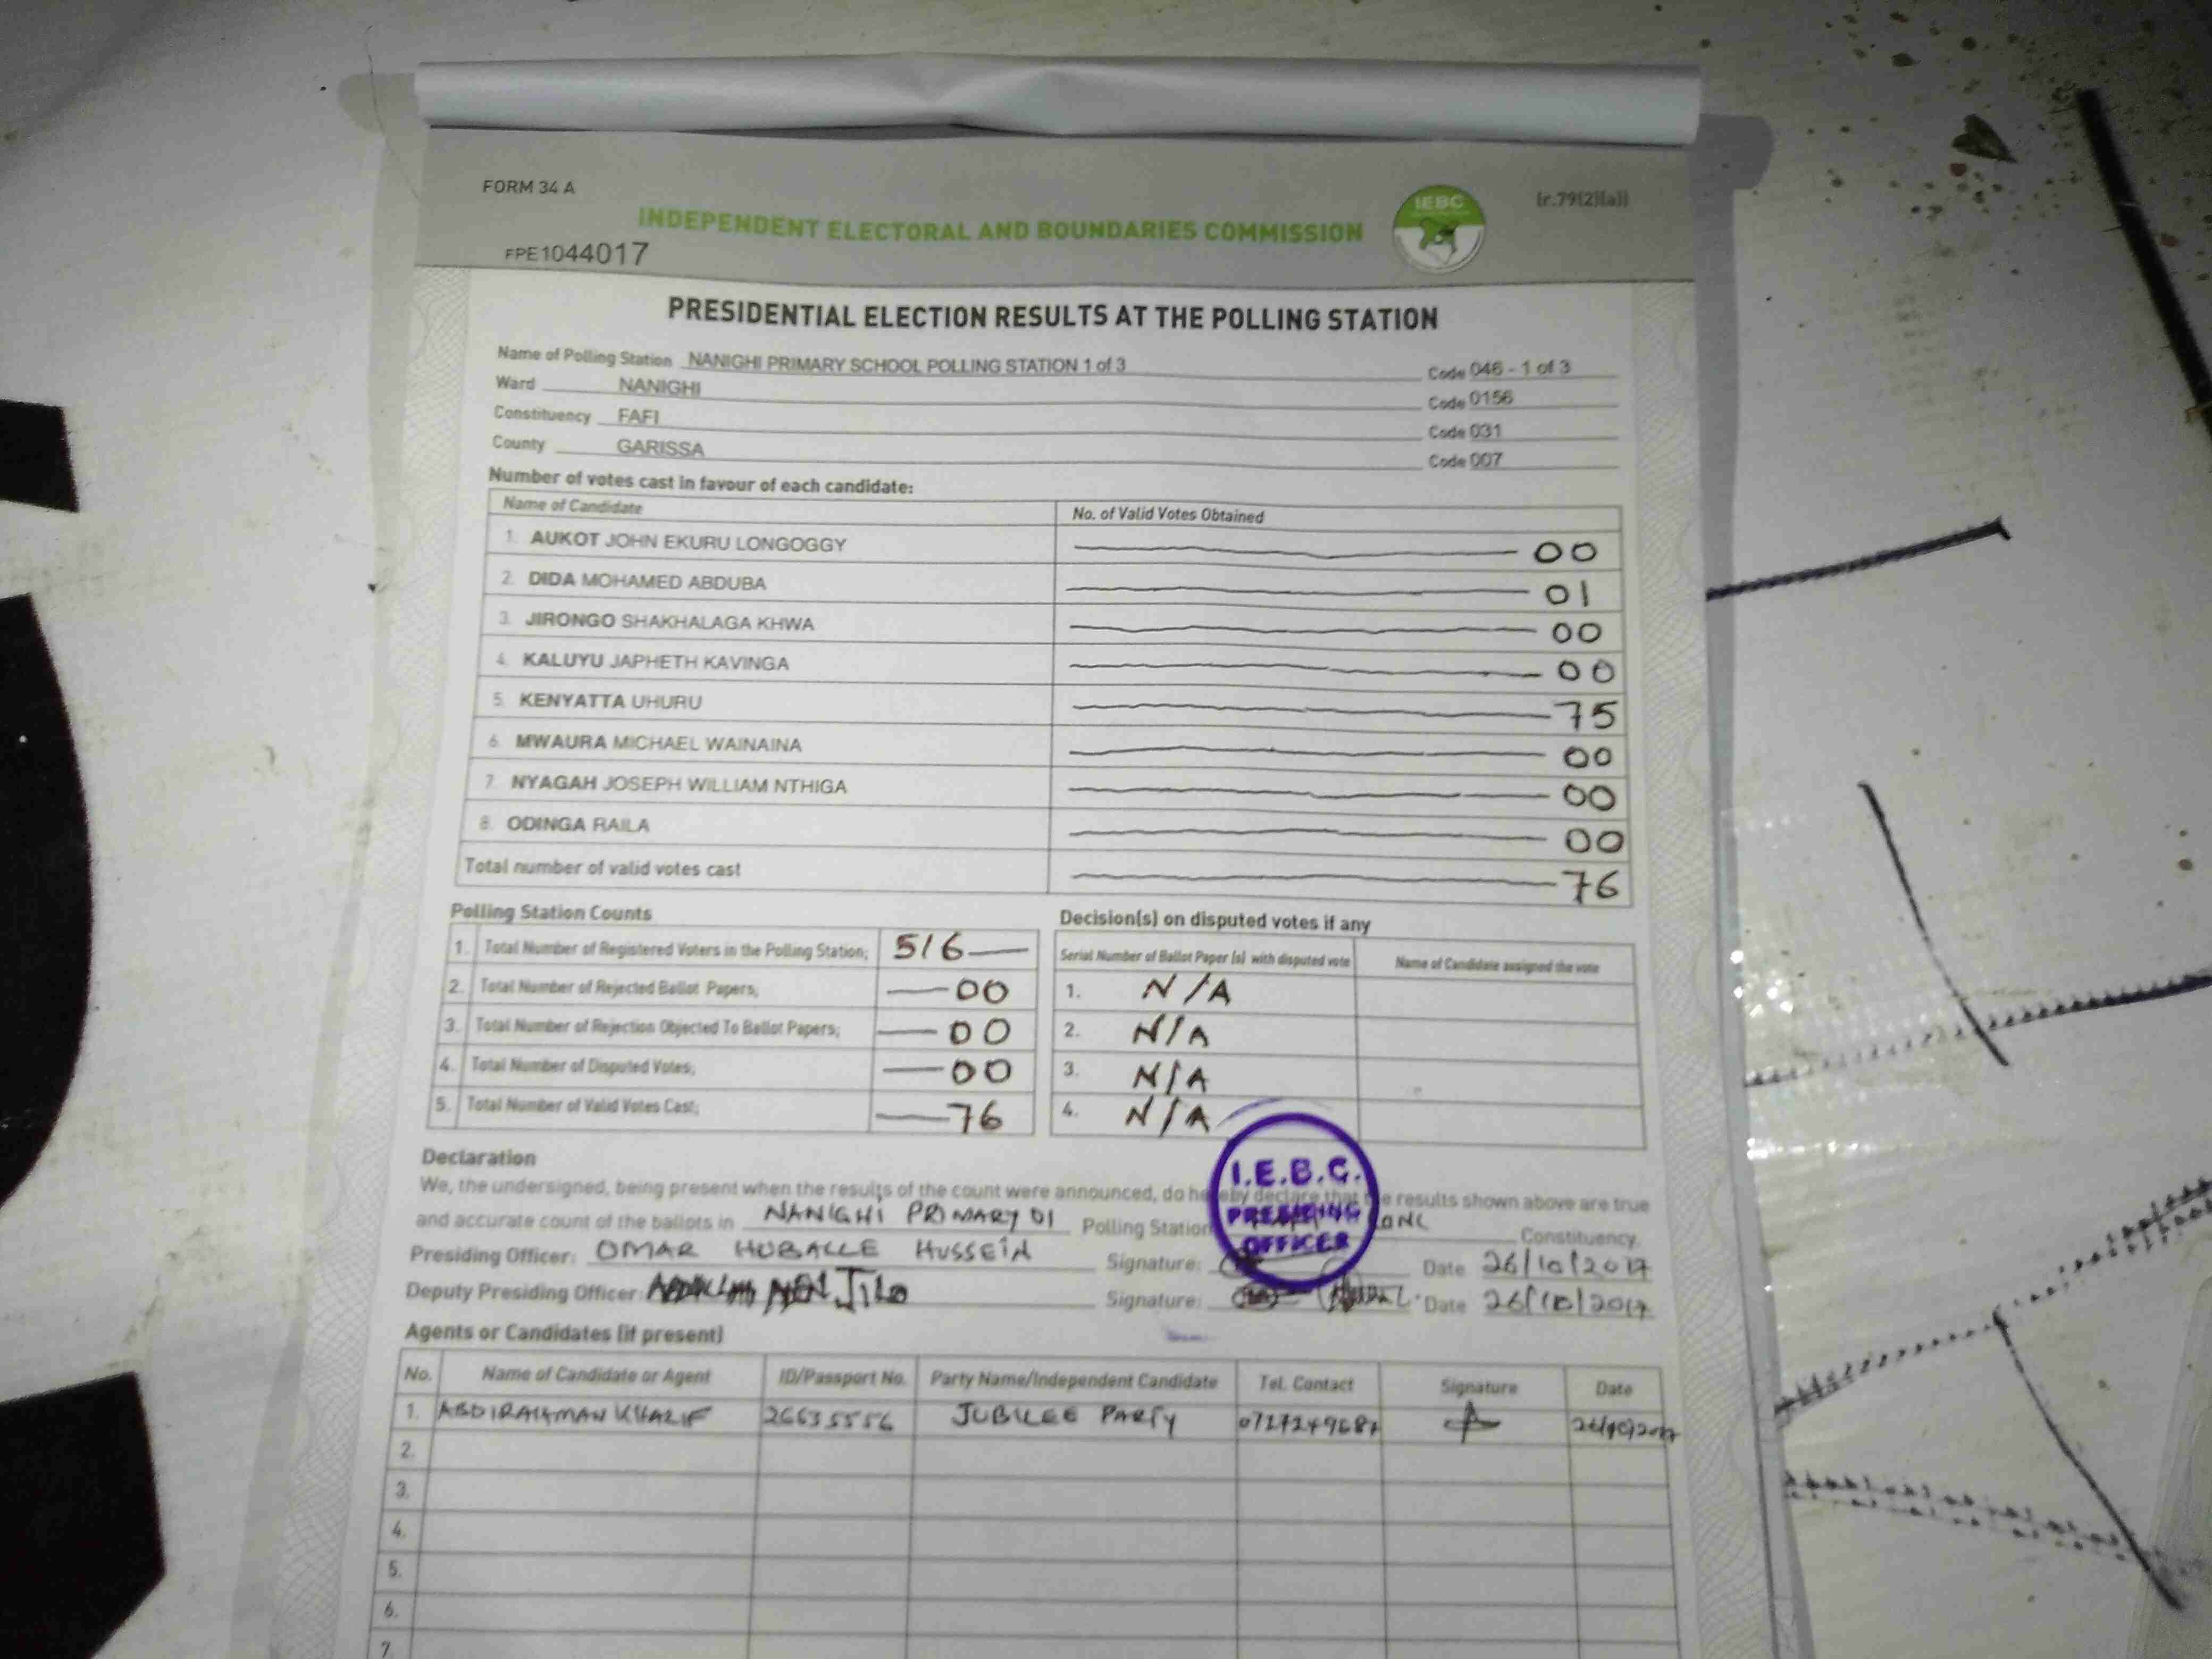 FORM 34 A
(r.79(2)(a))
IEBC
INDEPENDENT ELECTORAL AND BOUNDARIES COMMISSION
FPE1044017
PRESIDENTIAL ELECTION RESULTS AT THE POLLING STATION
Name of Polling Station NANIGHI PRIMARY SCHOOL POLLING STATION 1 of 3 Code 046 - 1 of 3
Ward NANIGHI Code 0156
Constituency FAFI Code 031
County GARISSA Code 007
Number of votes cast in favour of each candidate:
Name of Candidate No. of Valid Votes Obtained
1. AUKOT JOHN EKURU LONGOGGY 00
2. DIDA MOHAMED ABDUBA 01
3. JIRONGO SHAKHALAGA KHWA 00
4. KALUYU JAPHETH KAVINGA 00
5. KENYATTA UHURU 75
6. MWAURA MICHAEL WAINAINA 00
7. NYAGAH JOSEPH WILLIAM NTHIGA 00
8. ODINGA RAILA 00
Total number of valid votes cast 76
Polling Station Counts
1. Total Number of Registered Voters in the Polling Station; 516
2. Total Number of Rejected Ballot Papers; 00
3. Total Number of Rejection Objected To Ballot Papers; 00
4. Total Number of Disputed Votes; 00
5. Total Number of Valid Votes Cast; 76
Decision(s) on disputed votes if any
Serial Number of Ballot Paper (s) with disputed vote Name of Candidate assigned the vote
1. N/A
2. N/A
3. N/A
4. N/A
I.E.B.C.
PRESIDING
OFFICER
Declaration
We, the undersigned, being present when the results of the count were announced, do hereby declare that the results shown above are true
and accurate count of the ballots in NANIGHI PRIMARY 01 Polling Station Constituency.
Presiding Officer: OMAR HUBALLE HUSSEIN Signature: Date 26/10/2017
Deputy Presiding Officer: JILO Signature: Date 26/10/2017
Agents or Candidates (if present)
No. Name of Candidate or Agent ID/Passport No. Party Name/Independent Candidate Tel. Contact Signature Date
1. ABDIRAHMAN KHALIF 26635556 JUBILEE PARTY 26/10/2017
2.
3.
4.
5.
6.
7.